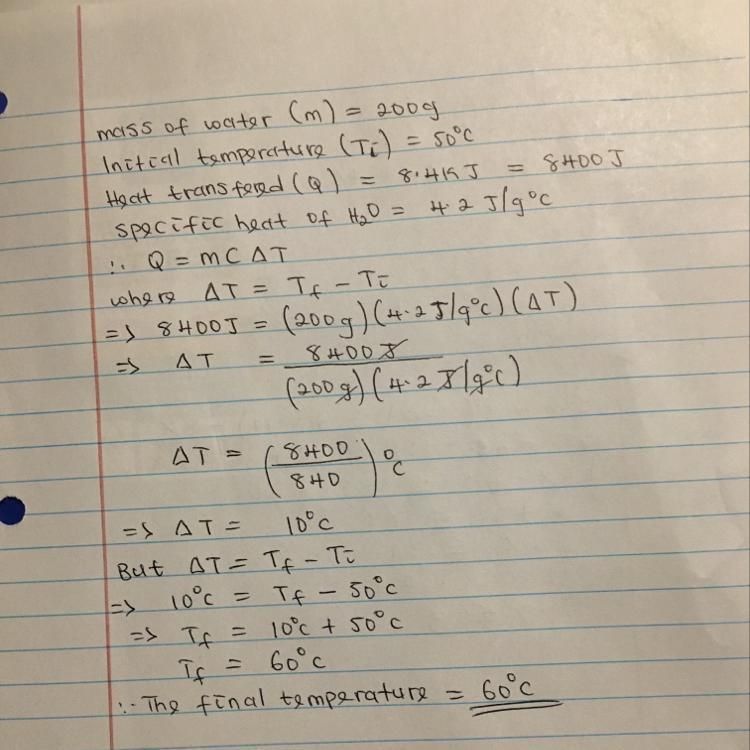 mass of water (m) = 200g
Initial temperature (Ti) = 50°C
Heat transfered (Q) = 8.4KJ = 8400J
specific heat of H₂O = 4.2 J/g°C
∴ Q = mCΔT
where ΔT = Tf − Ti
=> 8400J = (200g)(4.2J/g°C)(ΔT)
=> ΔT = 8400J / (200g)(4.2J/g°C)
ΔT = (8400/840)°C
=> ΔT = 10°C
But ΔT = Tf − Ti
=> 10°C = Tf − 50°C
=> Tf = 10°C + 50°C
Tf = 60°C
∴ The final temperature = 60°C